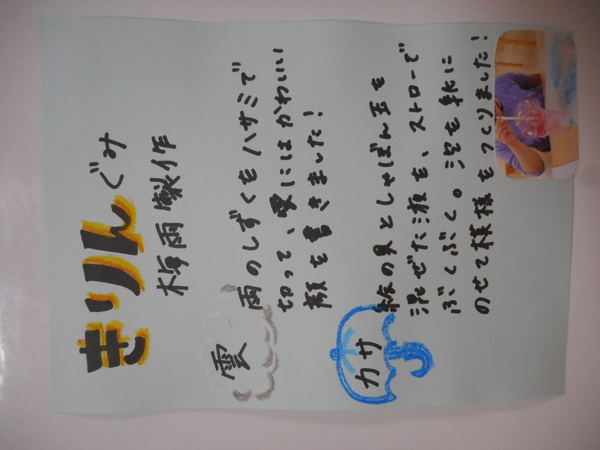 きりんぐみ
梅雨製作
雲
雨のしずくをハサミで
切って、雲にはかわいい
顔を書きました！
カサ
絵の具としゃぼん玉を
混ぜた液を、ストローで
ぶくぶく。泡を紙に
のせて模様をつくりました！